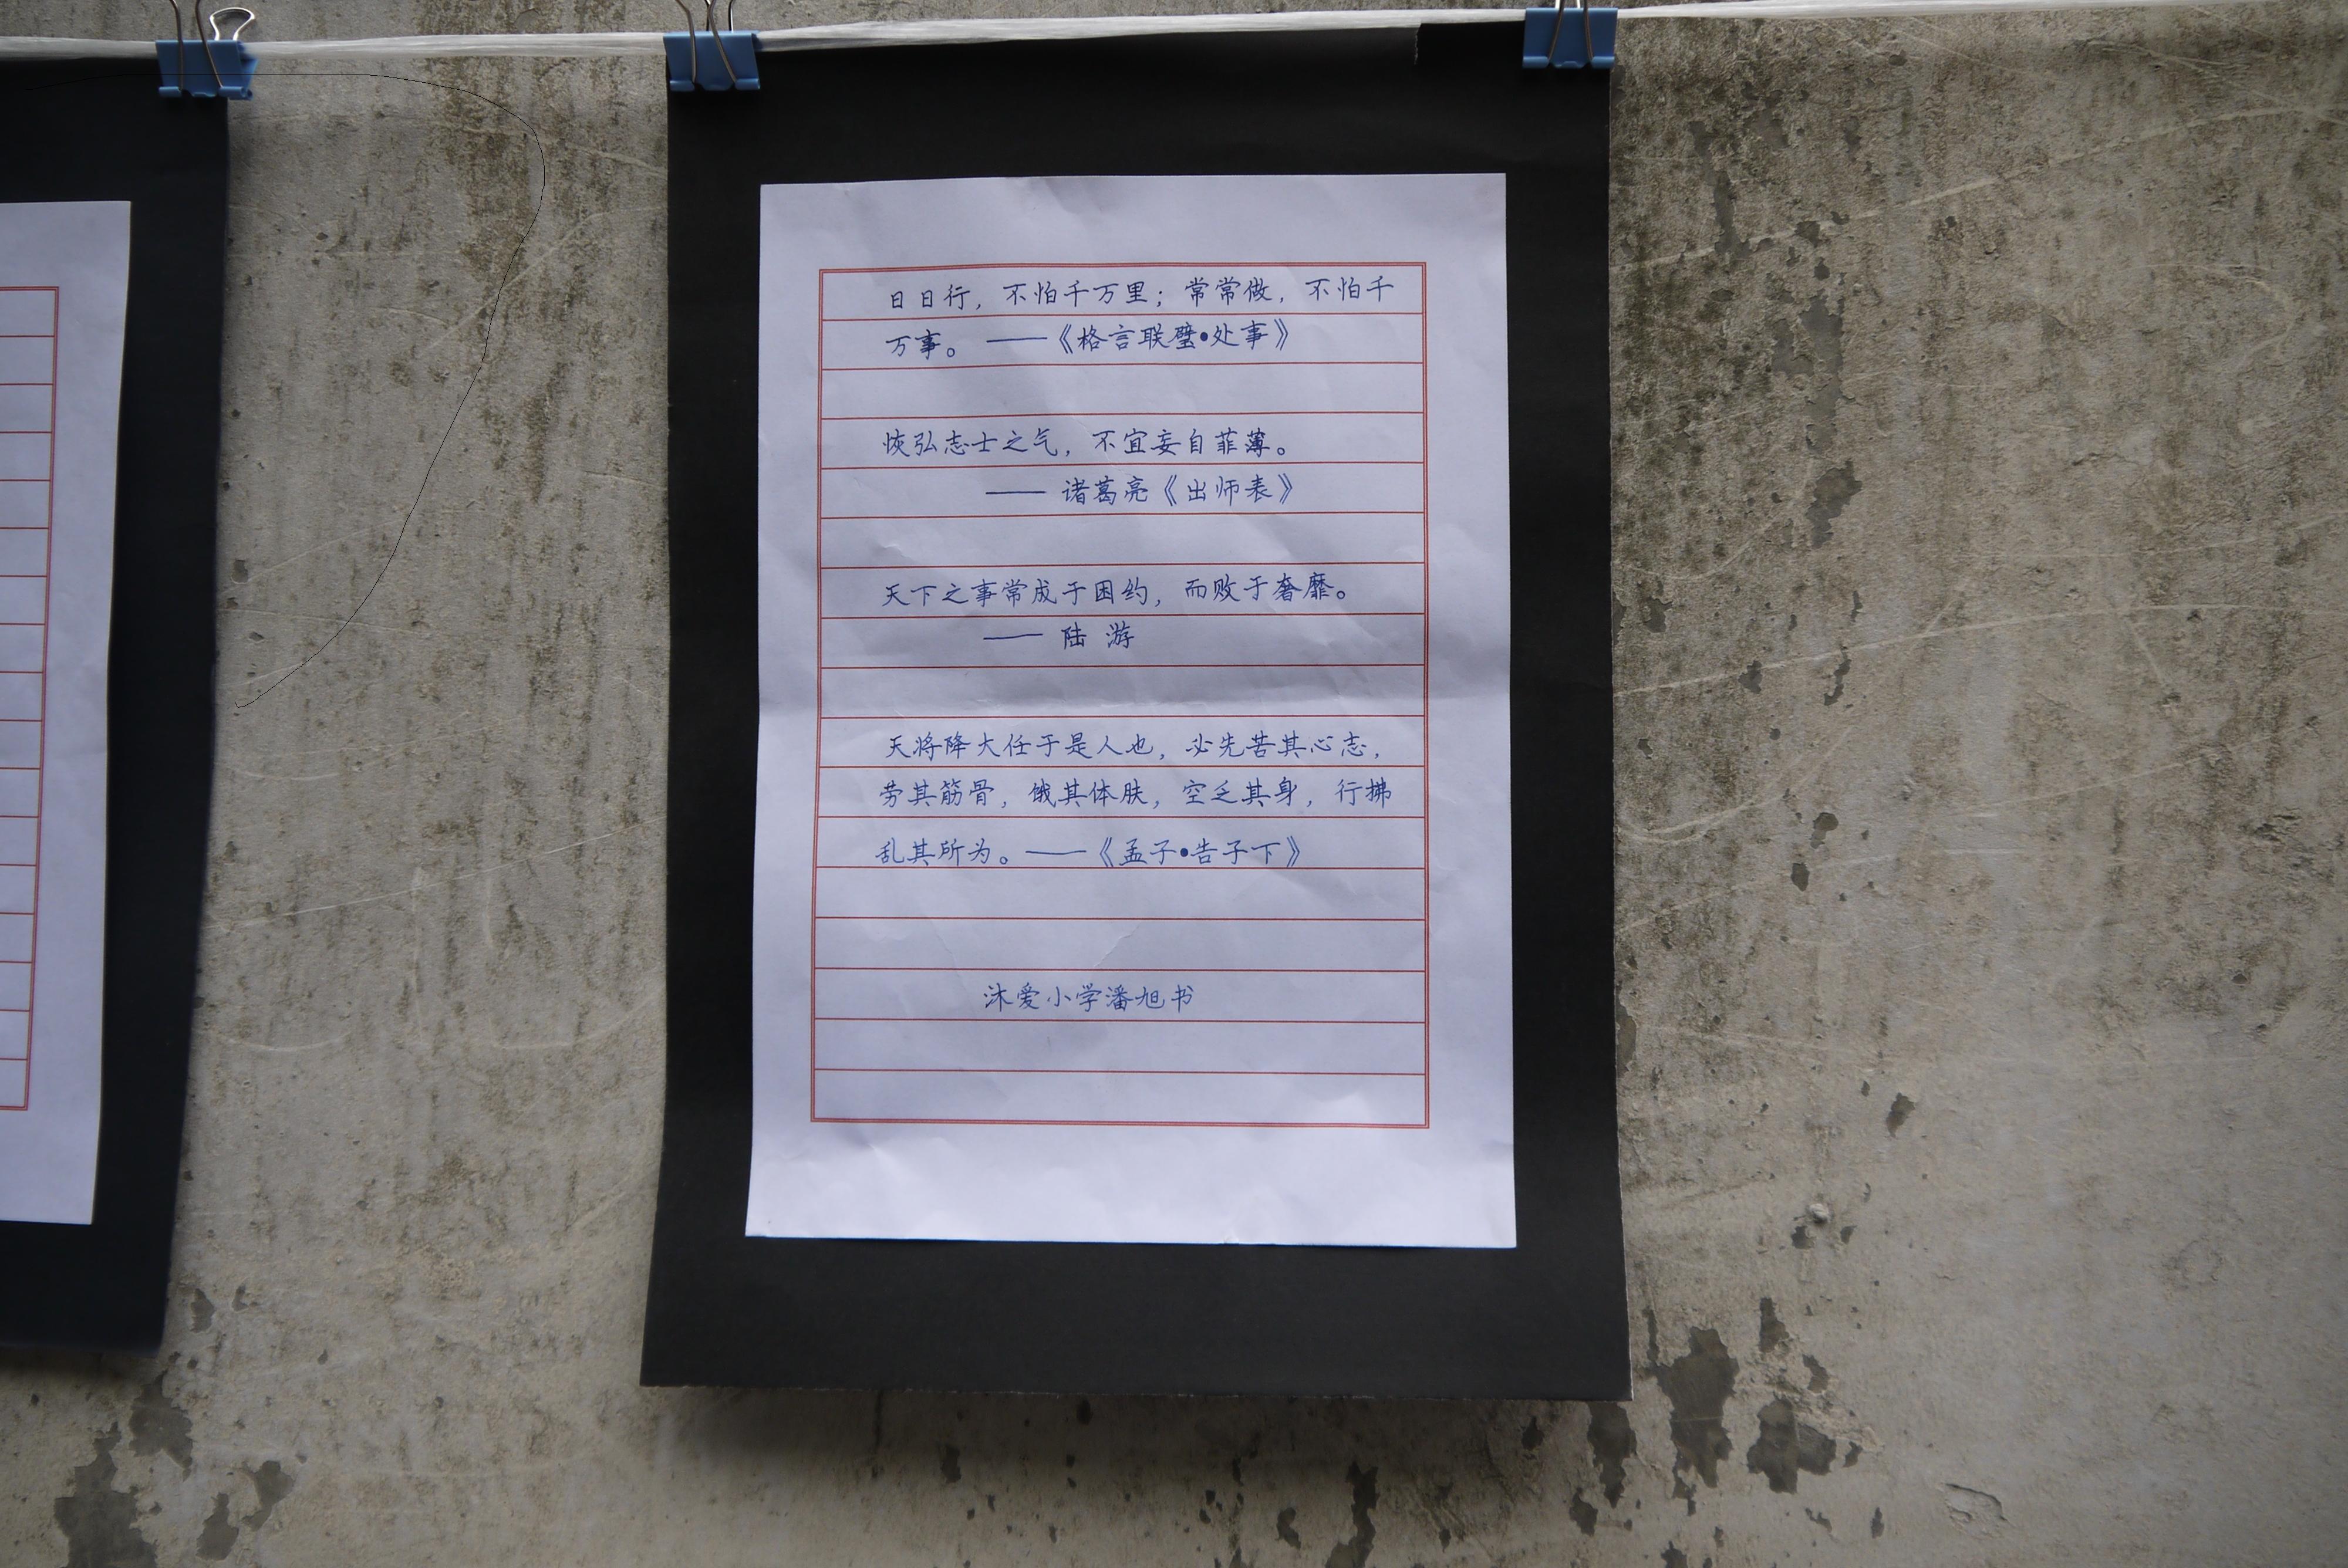 日日行，不怕千万里；常常做，不怕千
万事。——《格言联璧•处事》
恢弘志士之气，不宜妄自菲薄。
——诸葛亮《出师表》
天下之事常成于困约，而败于奢靡。
——陆 游
天将降大任于是人也，必先苦其心志，
劳其筋骨，饿其体肤，空乏其身，行拂
乱其所为。——《孟子•告子下》
沐爱小学潘旭书